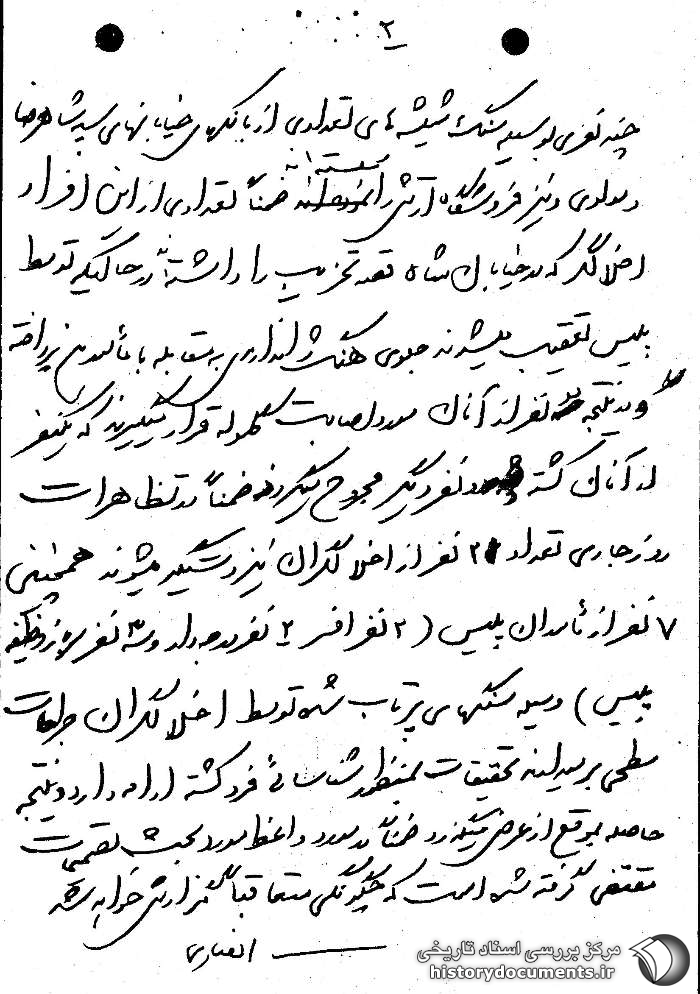 ۲
چند نفری بوسیله سنگ شیشه های تعدادی از بانکهای خیابانهای سپه شاهرضا
و مولوی و نیز فروشگاه ارتش را شکسته اند ضمناً تعدادی از این افراد
اخلالگر که در خیابان شاه قصد تخریب را داشته اند در حالیکه توسط
پلیس تعقیب میشدند جلوی هنگ ژاندارمری به مقابله با مأمورین پرداخته
و در نتیجه نفر از آنان مورد اصابت گلوله قرار میگیرند که یکنفر
از آنان کشته و نفر دیگر مجروح میگردند ضمناً در تظاهرات
روز جاری تعداد نفر از اخلالگران نیز دستگیر میشوند همچنین
۷ نفر از مأموران پلیس (۲ نفر افسر ۲ نفر درجه دار و ۳ نفر
پلیس) وسیله سنگهای پرتاب شده توسط اخلالگران جراحات
سطحی برمیدارند تحقیقات بمنظور شناسائی فرد کشته ادامه دارد و نتیجه
حاصله بموقع از عرض میگذرد ضمناً در مورد واعظ مورد بحث تصمیمات
مقتضی گرفته شده است که چگونگی متعاقباً گزارش خواهد شد
انصاری
مرکز بررسی اسناد تاریخی
historydocuments.ir